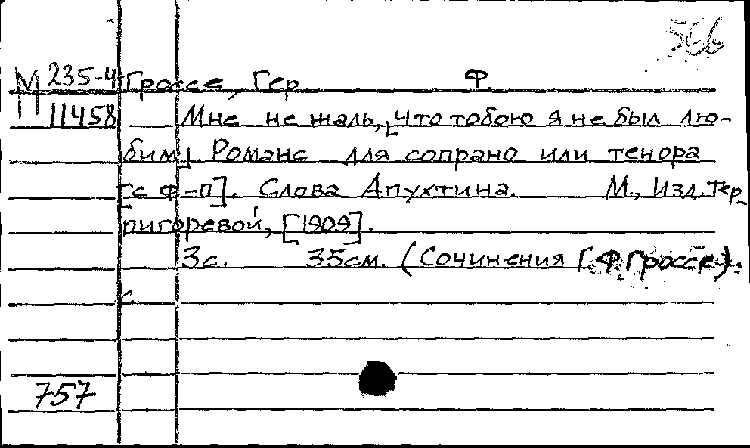 566
М 235-4 Гроссе, Гер. Ф.
11458 Мне не жаль, [что тобою я не был лю-
бим]. Романс для сопрано или тенора
[с ф-п]. Слова Апухтина. М., Изд. Тер-
пигоревой, [1909].
3с. 35см. (Сочинения Г. Ф. Гроссе).
757